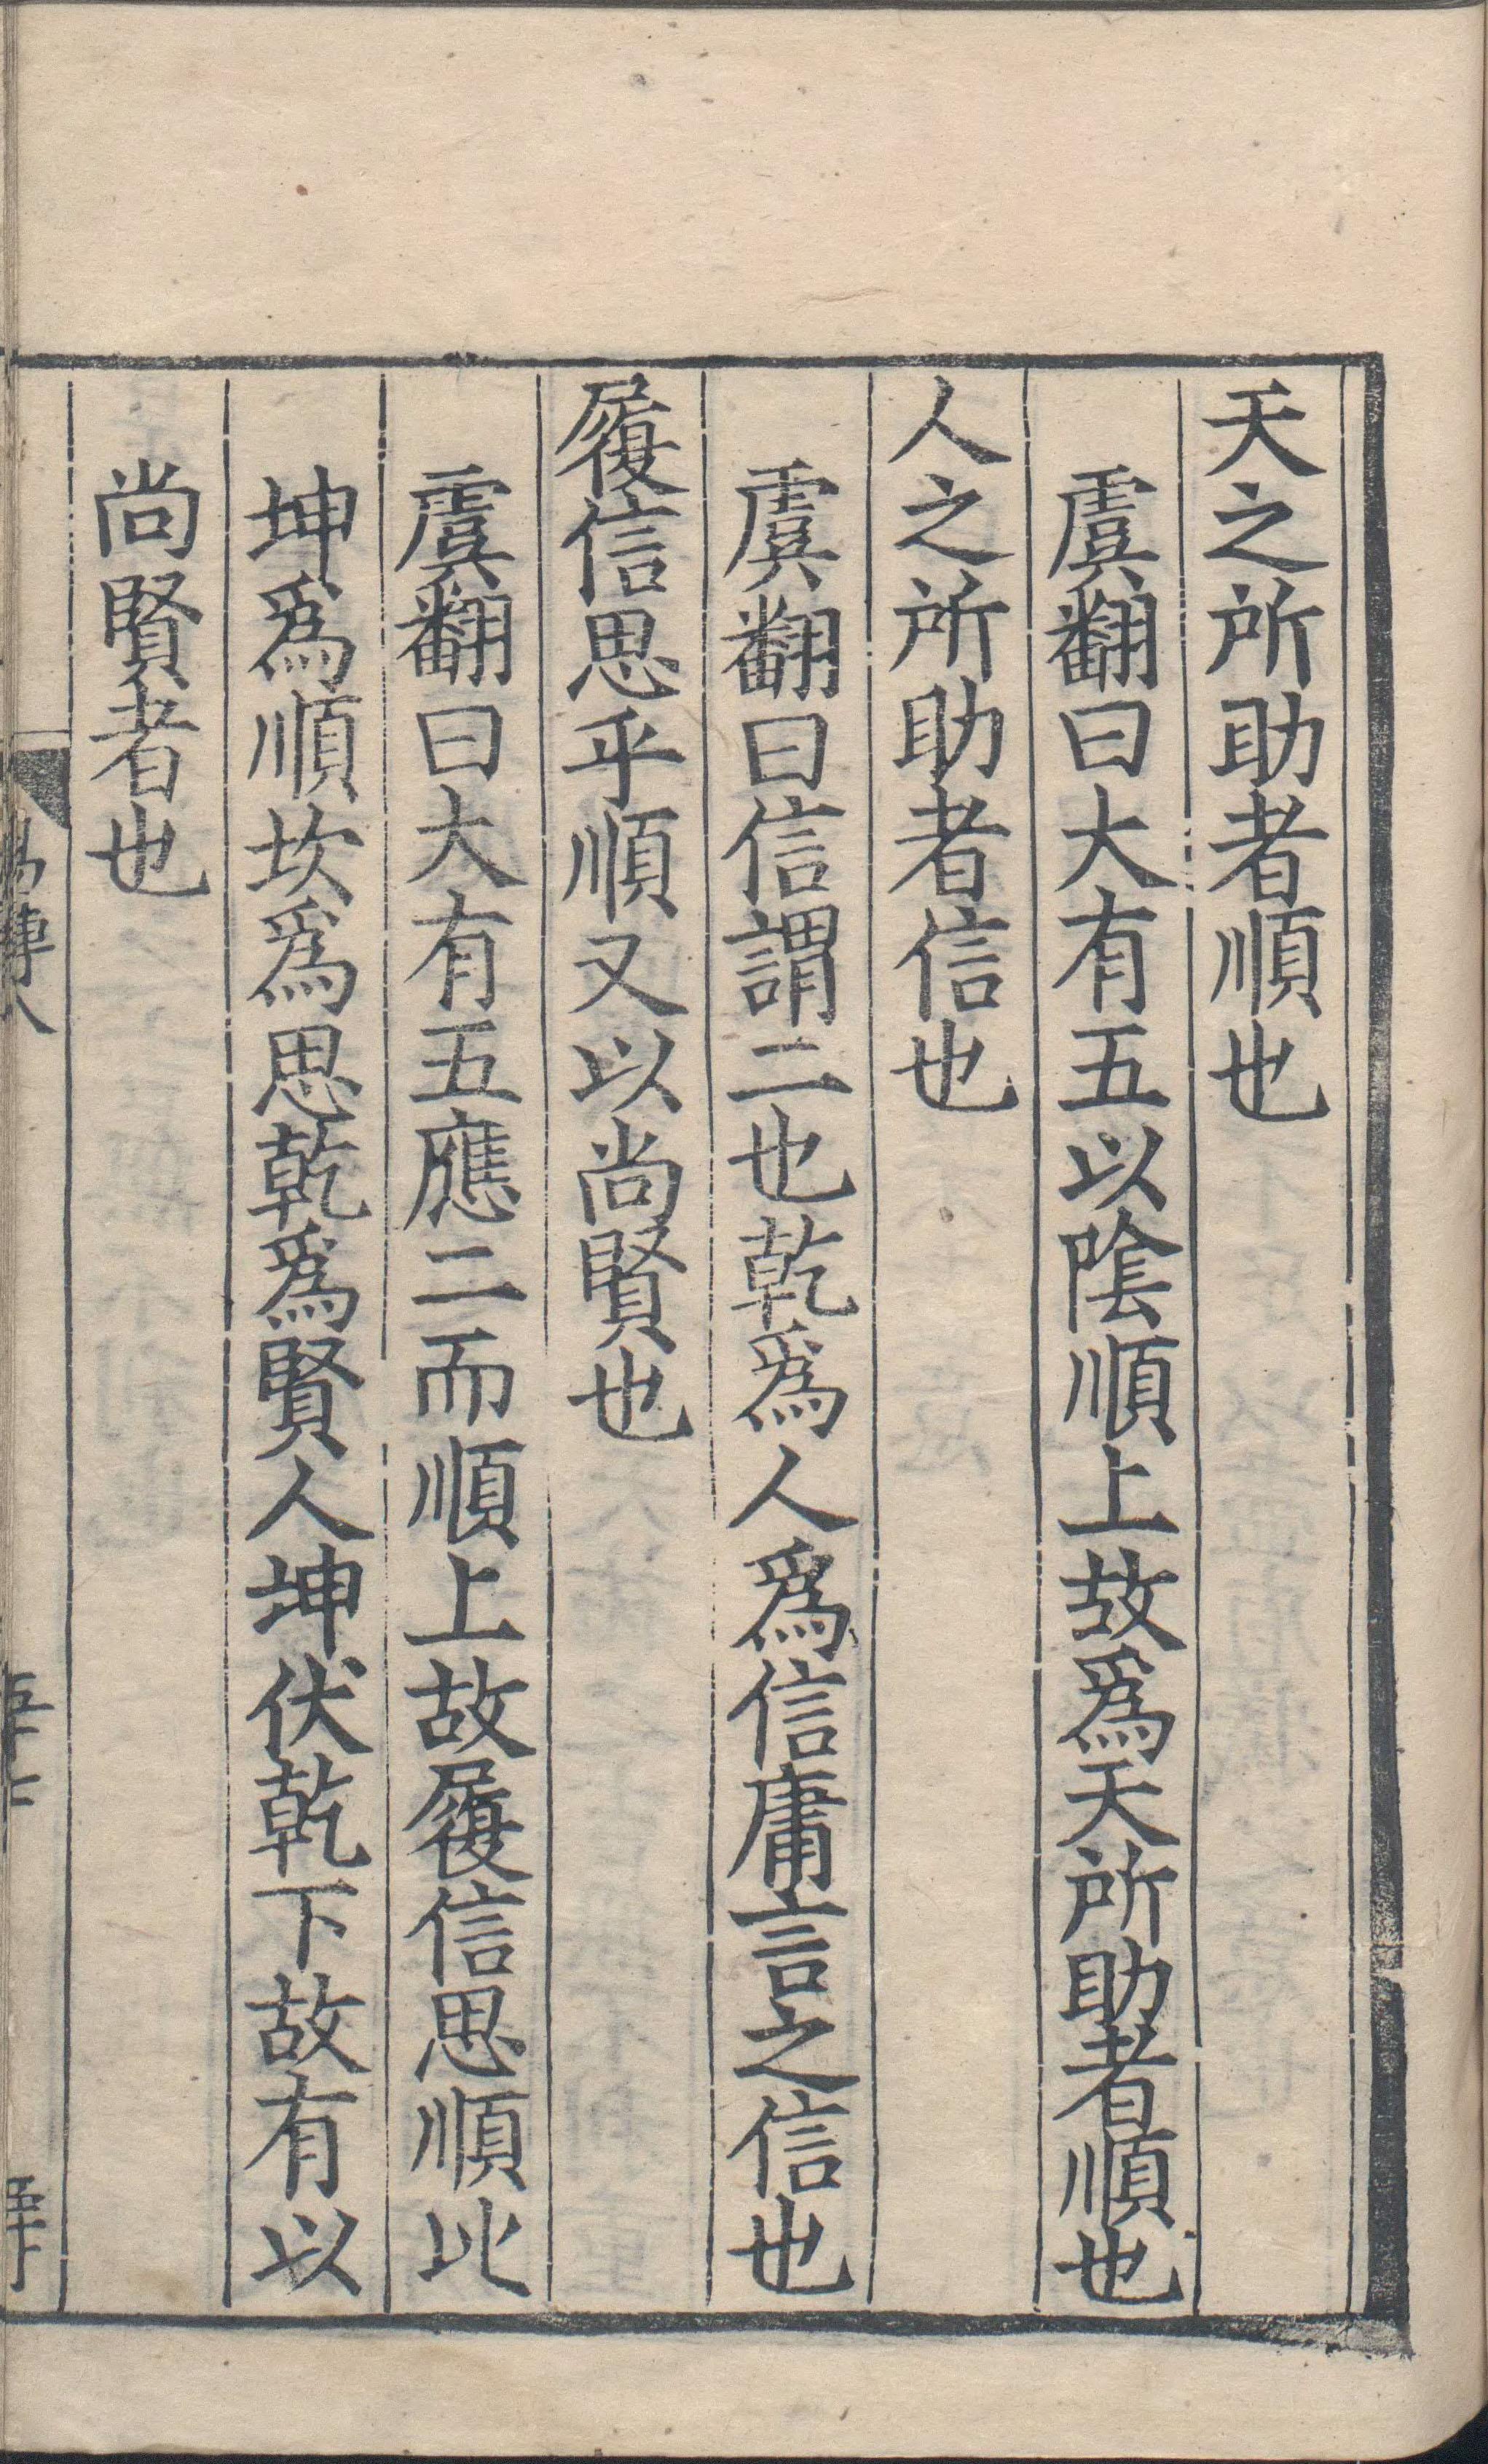 天之所助者順也
虞翻曰大有五以陰順上故爲天所助者順也
人之所助者信也
虞翻曰信謂二也乾爲人爲信庸言之信也
履信思乎順又以尚賢也
虞翻曰大有五應二而順上故履信思順比
坤爲順坎爲思乾爲賢人坤伏乾下故有以
尚賢者也